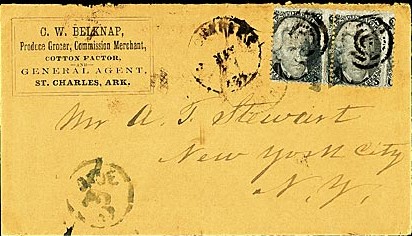 C. W. BELKNAP,
Produce Grocer, Commission Merchant,
COTTON FACTOR,
—AND—
GENERAL AGENT,
ST. CHARLES, ARK.
DUE
Mr A. T. Stewart
New York City
N. Y.